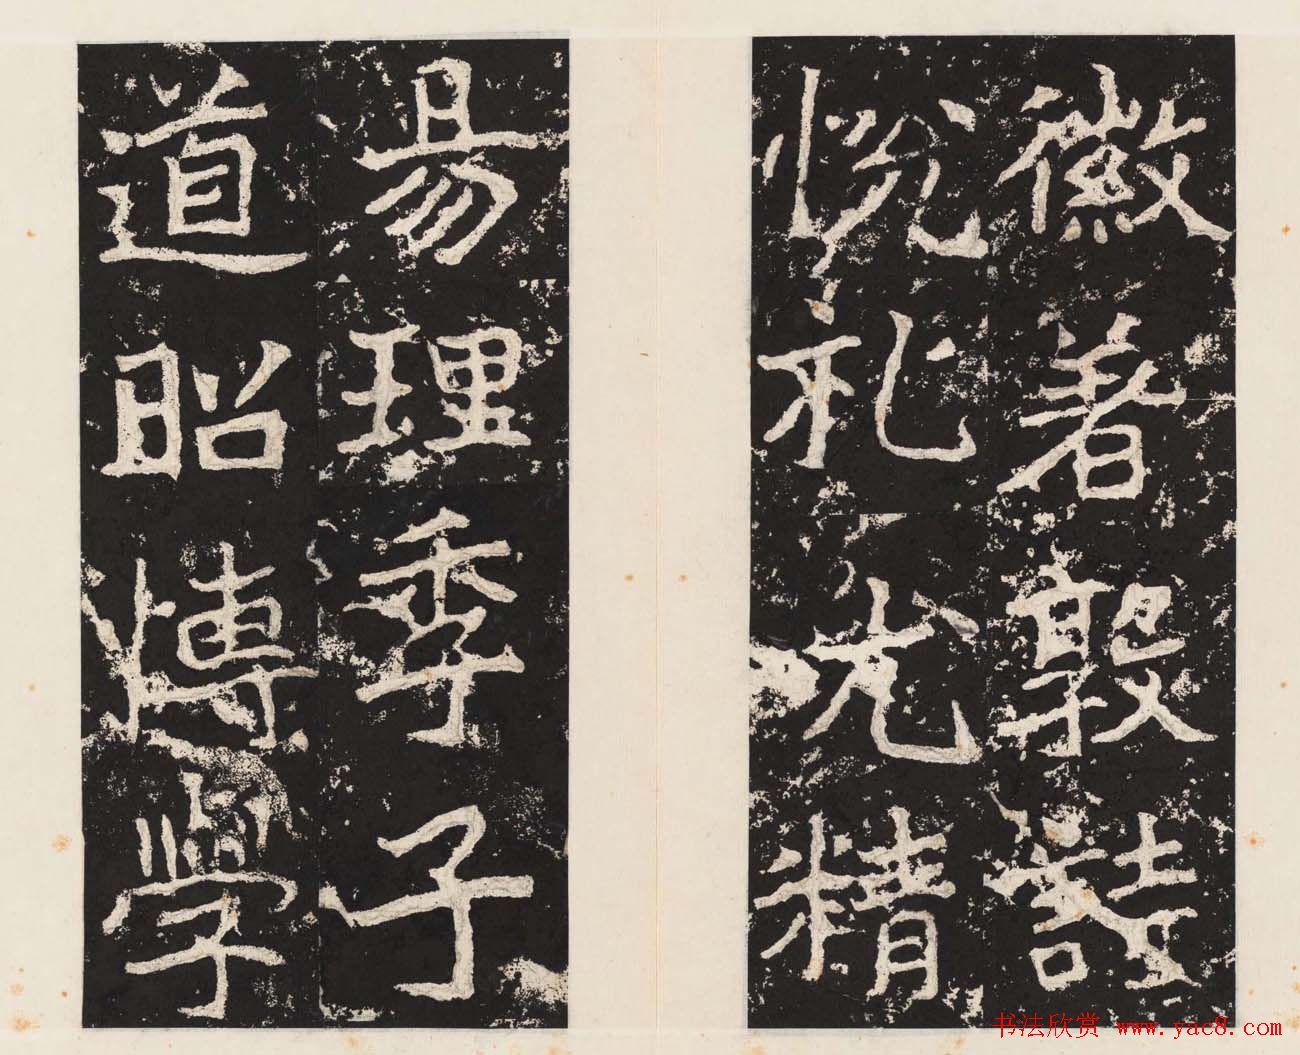 徽著敦詩
悅礼尤精
易理季子
道昭愽學
书法欣赏 www.yac8.com